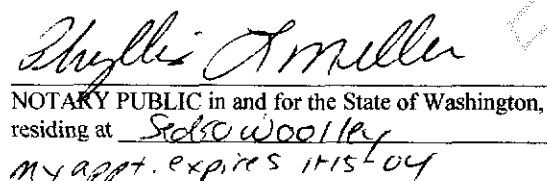 Phyllis L Meller
NOTARY PUBLIC in and for the State of Washington,
residing at Sedro Woolley
my appt. expires 1-15-04